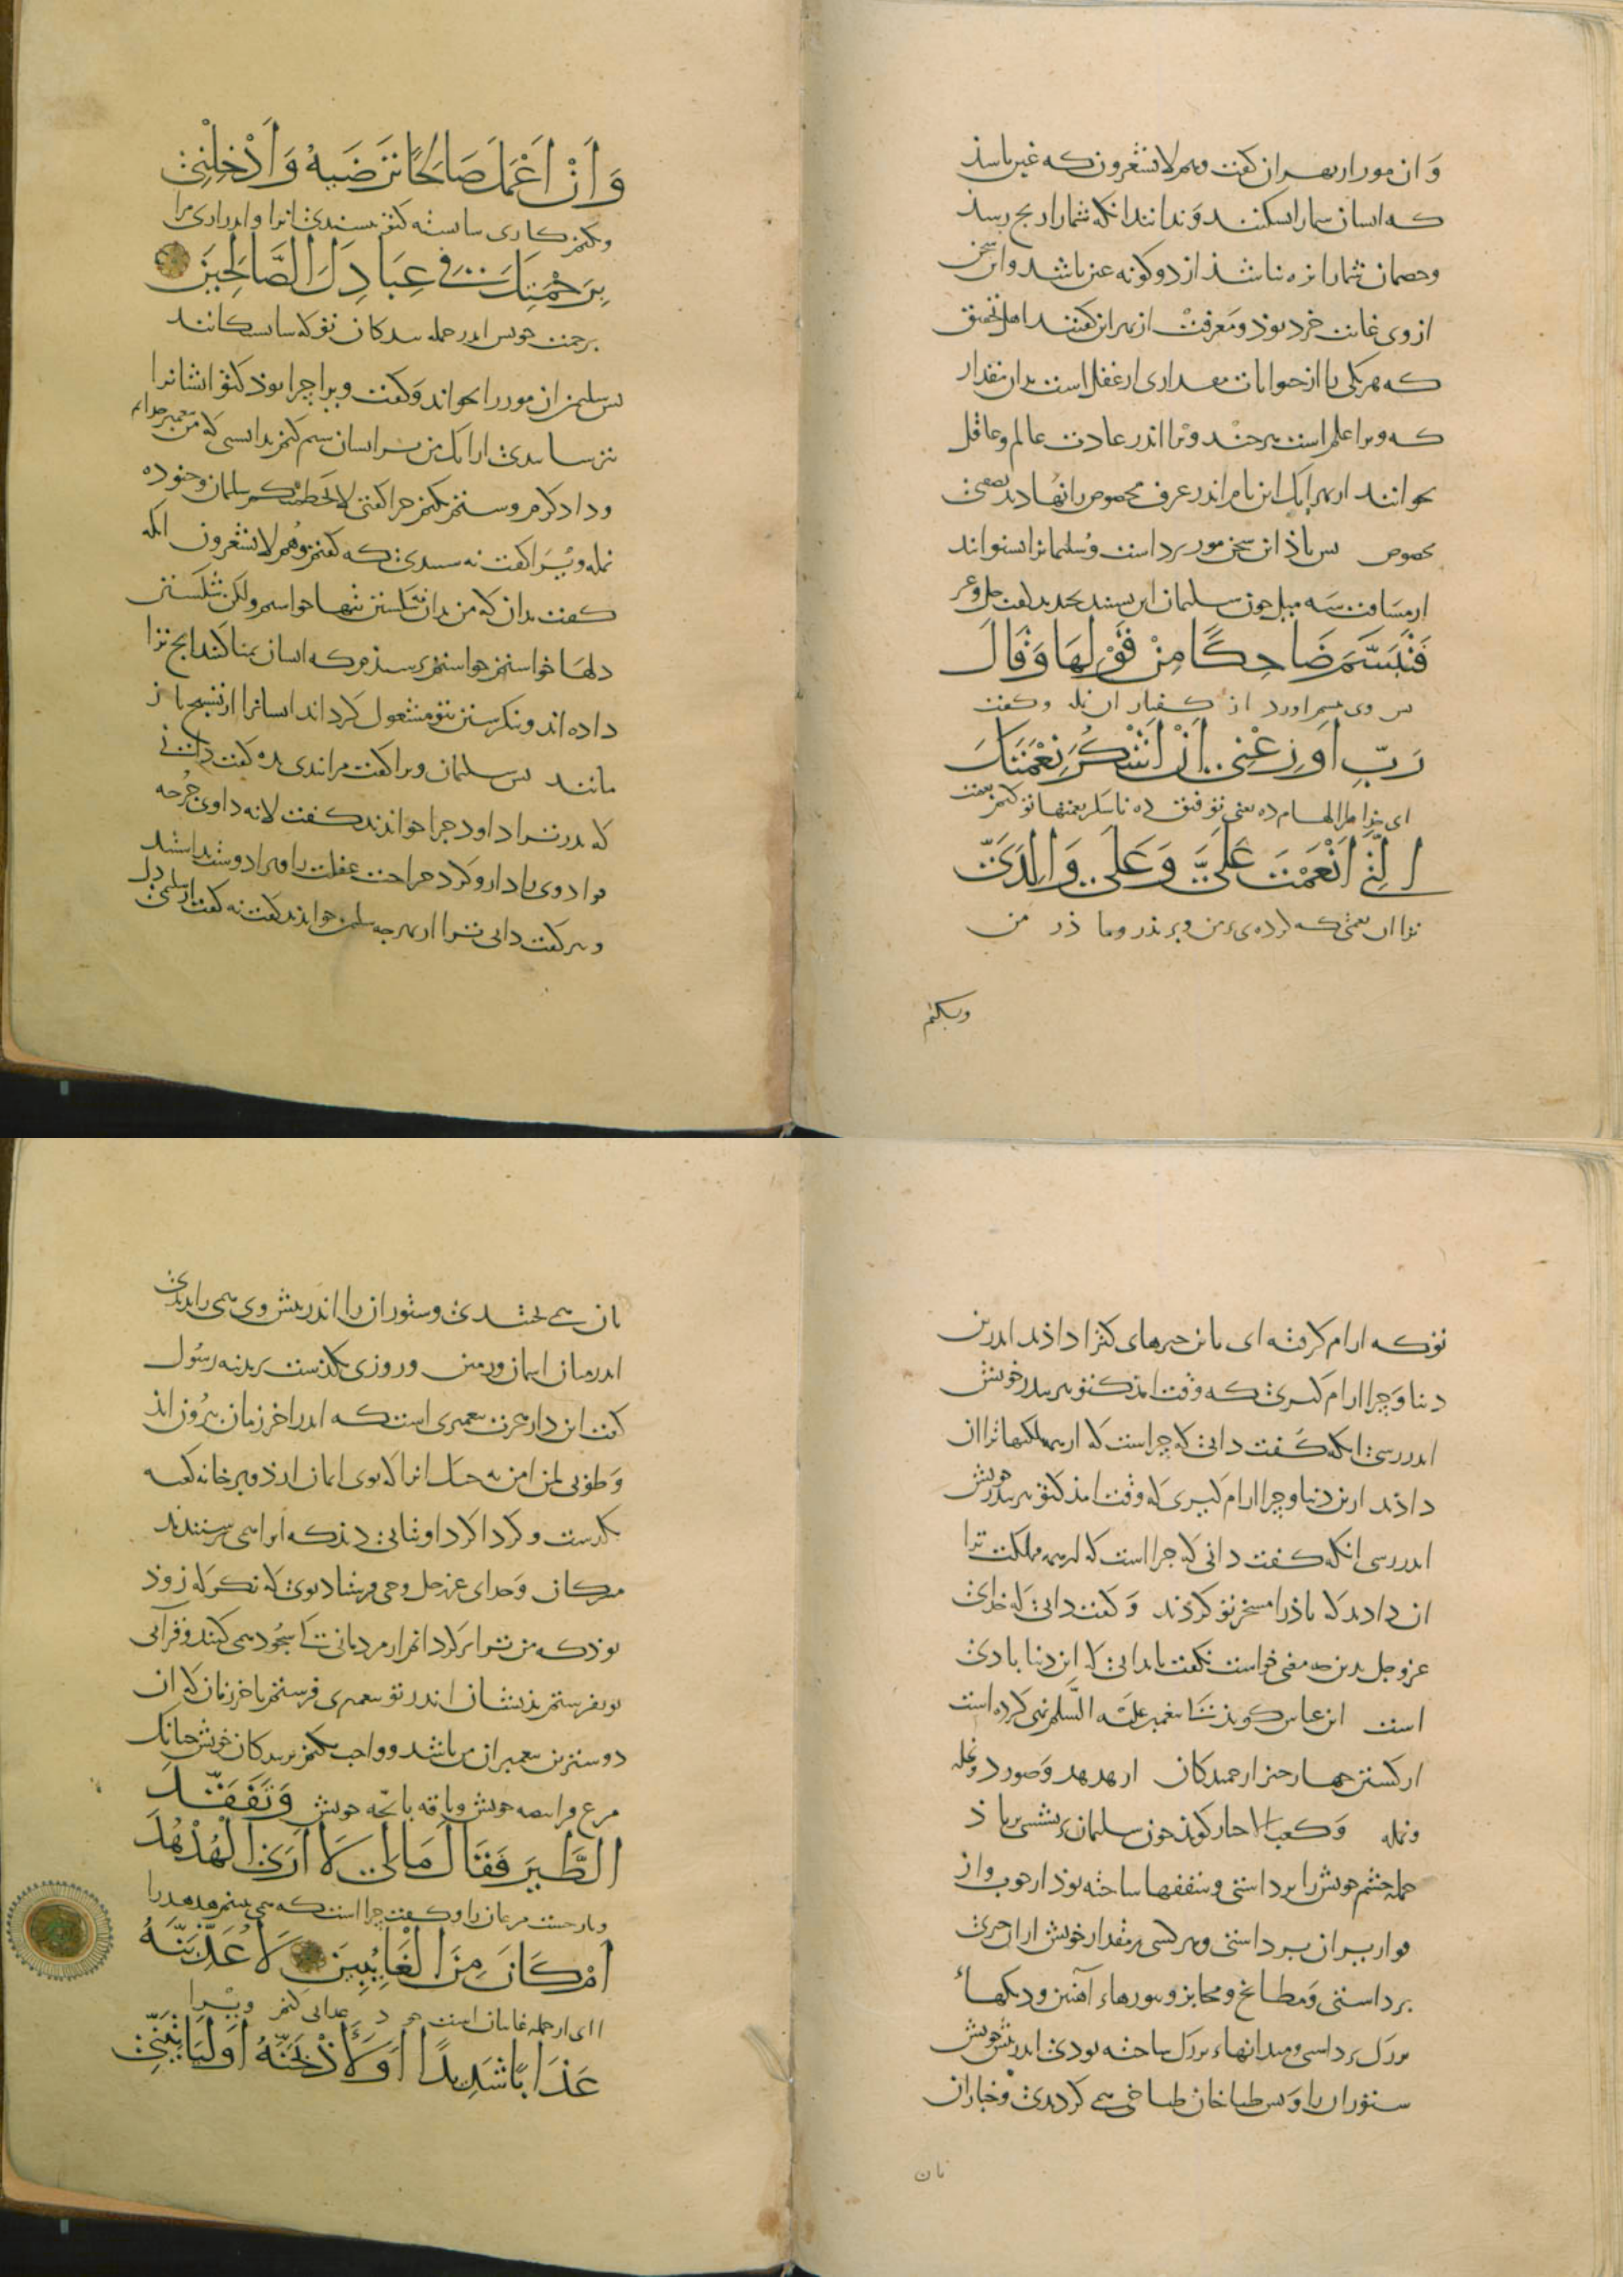 و ان مور ازبهر ان گفت وهم لا یشعرون که غیر باشد
که ایشان شما را بشکنند و ندانند انکه شما را رنج رسد
وخصمان شما را بزه نباشد از دو گونه عیب باشد و این سخن
از وی غایت خرد بوذ و معرفت از بهر این گفتند اهل تحقیق
که هر یکی را از حیوانات مقداری از عقل است بدان مقدار
که ویرا علم است هرچند ویرا اندر عادت عالم و عاقل
نخوانند از بهر انک این نام اندر عرف مخصوص را نهادند بصفتی
مخصوص پس باذ این سخن مور برداشت و سلیمانرا بشنواند
از مسافت سه میل چون سلیمان این بشنید بخندید گفت جل وعز
فَتَبَسَّمَ ضَاحِكًا مِنْ قَوْلِهَا وَقَالَ
پس وی تبسم اورد از گفتار ان نمله و گفت
رَبِّ اَوْزِعْنِي اَنْ اَشْكُرَ نِعْمَتَكَ
ای خذا مرا الهام ده یعنی توفیق ده تا شکر نعمتها تو کنم
الَّتِي اَنْعَمْتَ عَلَيَّ وَعَلَى وَالِدَيَّ
ترا ان نعمتی که کرده‌ی بر من و بر پذر و ما ذر من
وبکنم
وَاَنْ اَعْمَلَ صَالِحًا تَرْضَيهُ وَاَدْخِلْنِي
وبکنم کاری شایسته کتو بپسندی انرا و اندر اری مرا
بِرَحْمَتِكَ فِي عِبَادِكَ الصَّالِحِينَ
برحمت خویش اندر جمله بندگان تو که شایستگانند
پس سلیمن ان مور را بخواند و گفت ویرا چرا بوذ کتو ایشانرا
بترسانیدی از انک من بر ایشان ستم کنم ندانستی که من پیغمبر خدایم
و داد کرم و ستم نکنم چرا گفتی لا یحطمنکم سلیمان وجنوده
نمله ویرا گفت نه شنیدی که گفتم وهم لا یشعرون انکه
گفت بدان که من بدان شکستن تنها نخواستم ولکن شکستن
دلها خواستم خواستم ترسیذم که ایشان تمنا کنند انچ ترا
داده اند و بنگرستن بتو مشغول گرداند ایشانرا از تسبیح باز
مانند پس سلیمان ویرا گفت مرا پندی بده گفت دانی
که پدر ترا داود چرا خواندند گفت لانه داوی جرحه
فوادوی یا دارو کرد جراحت
و هم گفت دانی ترا از بهر چه سلیمن خواندند گفت نه گفت
توکه ارام گرفته ای باین چیزهای کترا داذند اندرین
دنیا و چرا ارام گیری که وقت امذ کتو بر پدر خویش
اندر رسی انکه گفت دانی که چراست که از همه ملکتها ترا ان
داذند ازین دنیا و چرا ارام گیری که وقت امذ کتو بر پدر خویش
اندر رسی انکه گفت دانی که چرا است که از همه مملکت ترا
ان دادند که باذ را مسخر تو کردند و گفت دانی که خدای
عزوجل بدین چه معنی خواست گفت تا بدانی که این دنیا بادی
است ابن عباس گویذ تا پیغمبر علیه السلم نهی کرده است
از کشتن چهار چیز از جمندگان از هدهد و صورد و نحله
ونمله و کعب الاحبار گویذ چون سلیمان بر نشستی بر باذ
جمله حشم خویش را برداشتی و سقفها ساخته بوذ از چوب و از
برداشتی و هر کسی بر مقدار خویش از ان چیزی
برداشتی و مطابخ و مخابز و تنورهاء آهنین و دیگها
بزرگ برداشتی و میدانهاء بزرگ ساخته بودی اندر پیش خویش
ستوران را و پس طباخان طباخی همی کردندی و خبازان
نان
نان همی پختندی و ستوران را اندر پیش وی همی راندندی
اندر میان اسمان و زمین و روزی بگذشت بر مدینه رسول
گفت این دار هجرت پیغمبری است که اندر اخر زمان بیرون ایذ
و طوبی لمن امن به خنک انرا که بوی ایمان ارذ و بر خانه کعبه
بگذشت و گرداگرد او بتانی دیذ که انرا همی پرستندند
مشرکان و خدای عزوجل وحی فرستاد بوی که بس نگر که زود
بوذ که من ترا پر گردانم از مردمانی کت سجود همی کنند و قرآنی
نو بفرستم بذیشان اندر تو پیغمبری فرستم باخر زمان که ان
دوسترین پیغمبران من باشد و واجب کنم بر بندگان خویش چنانک
مرغ فرا بیضه خویش و ناقه با بچه خویش وَتَفَقَّدَ
الطَّيْرَ فَقَالَ مَا لِيَ لَا اَرَى الْهُدْهُدَ
و باز جست مرغان را و گفت چرا است که همی نبینم هدهد را
اَمْ كَانَ مِنَ الْغَائِبِينَ لَاُعَذِّبَنَّهُ
ا ای از جمله غایبان است هو د عذابی کنم ویرا
عَذَابًا شَدِيدًا اَوْ لَاَذْبَحَنَّهُ اَوْ لَيَأْتِيَنِّي